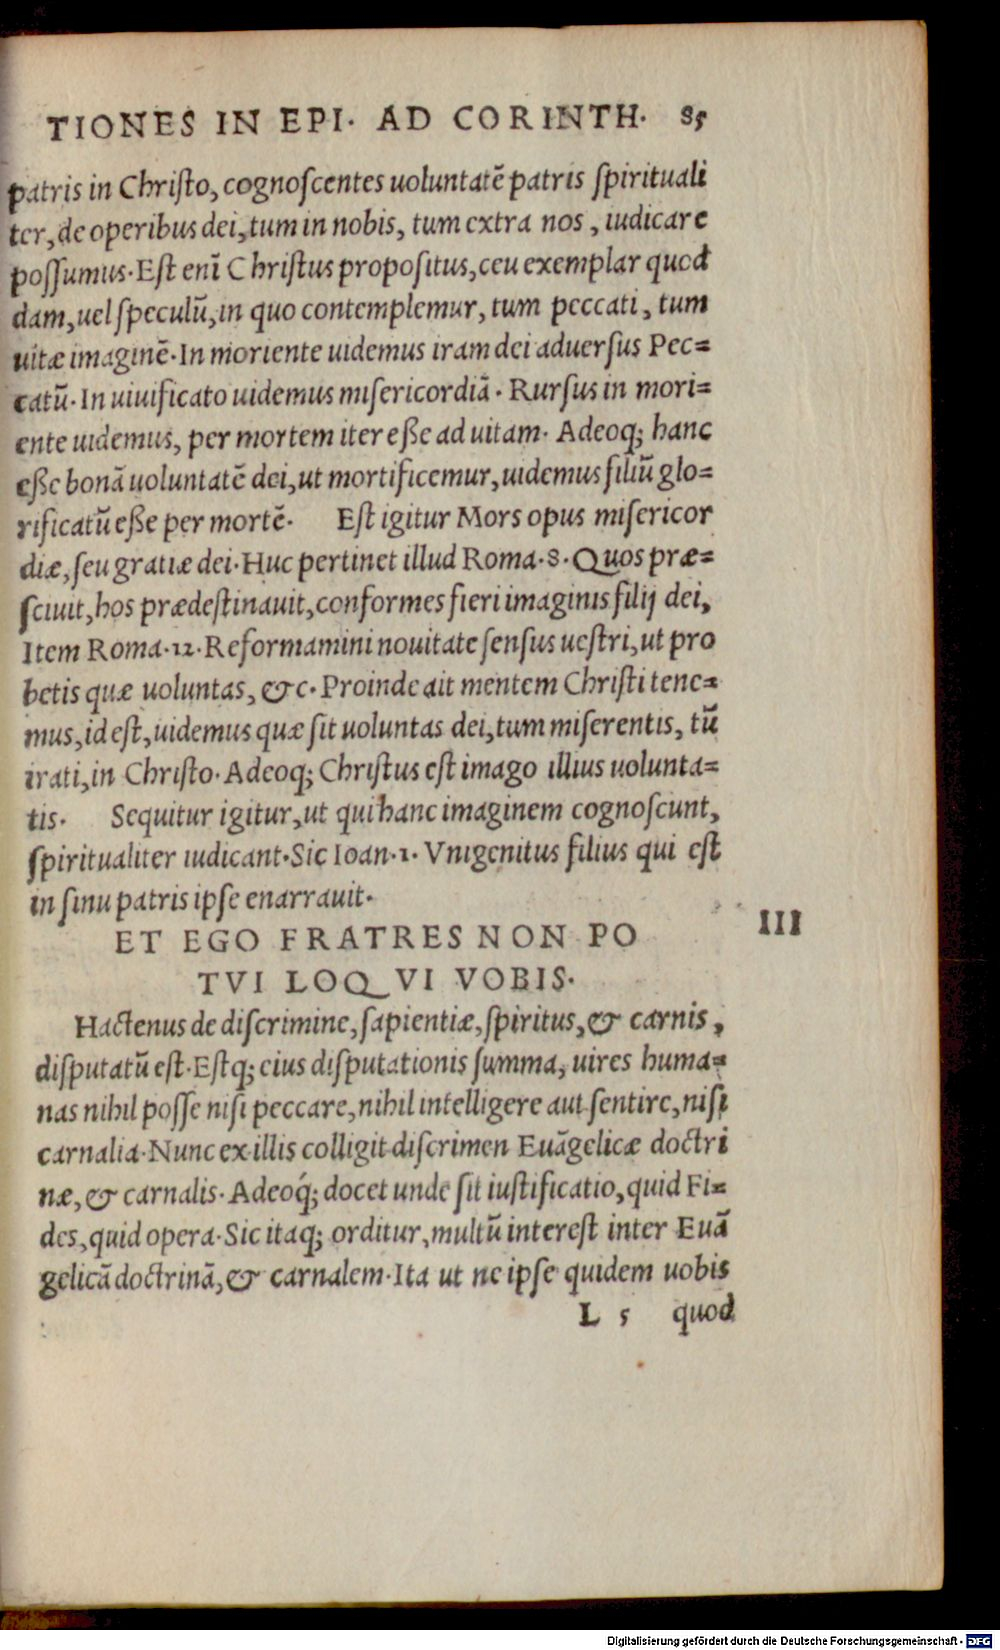 TIONES IN EPI. AD CORINTH. 85
patris in Chriſto, cognoſcentes uoluntatē patris ſpirituali
ter, de operibus dei, tum in nobis, tum extra nos, iudicare
poſſumus. Eſt enī Chriſtus propoſitus, ceu exemplar quod
dam, uel ſpeculū, in quo contemplemur, tum peccati, tum
uitæ imaginē. In moriente uidemus iram dei aduerſus Pec=
catū. In uiuificato uidemus miſericordiā. Rurſus in mori=
ente uidemus, per mortem iter eſſe ad uitam. Adeoq; hanc
eſſe bonā uoluntatē dei, ut mortificemur, uidemus filiū glo=
rificatū eſſe per mortē. Eſt igitur Mors opus miſericor
diæ, ſeu gratiæ dei. Huc pertinet illud Roma. 8. Quos præ=
ſciuit, hos prædeſtinauit, conformes fieri imaginis filij dei,
Item Roma. 12. Reformamini nouitate ſenſus ueſtri, ut pro
betis quæ uoluntas, &c. Proinde ait mentem Chriſti tene=
mus, id eſt, uidemus quæ ſit uoluntas dei, tum miſerentis, tū
irati, in Chriſto. Adeoq; Chriſtus eſt imago illius uolunta=
tis. Sequitur igitur, ut qui hanc imaginem cognoſcunt,
ſpiritualiter iudicant. Sic Ioan. 1. Vnigenitus filius qui eſt
in ſinu patris ipſe enarrauit.
ET EGO FRATRES NON PO III
TVI LOQVI VOBIS.
Hactenus de diſcrimine, ſapientiæ, ſpiritus, & carnis,
diſputatū eſt. Eſtq; eius diſputationis ſumma, uires huma=
nas nihil poſſe niſi peccare, nihil intelligere aut ſentire, niſi
carnalia. Nunc ex illis colligit diſcrimen Euāgelicæ doctri
næ, & carnalis. Adeoq́; docet unde ſit iuſtificatio, quid Fi=
des, quid opera. Sic itaq; orditur, multū intereſt inter Euā
gelicā doctrinā, & carnalem. Ita ut ne ipſe quidem uobis
L 5 quod
Digitalisierung gefördert durch die Deutsche Forschungsgemeinschaft - DFG